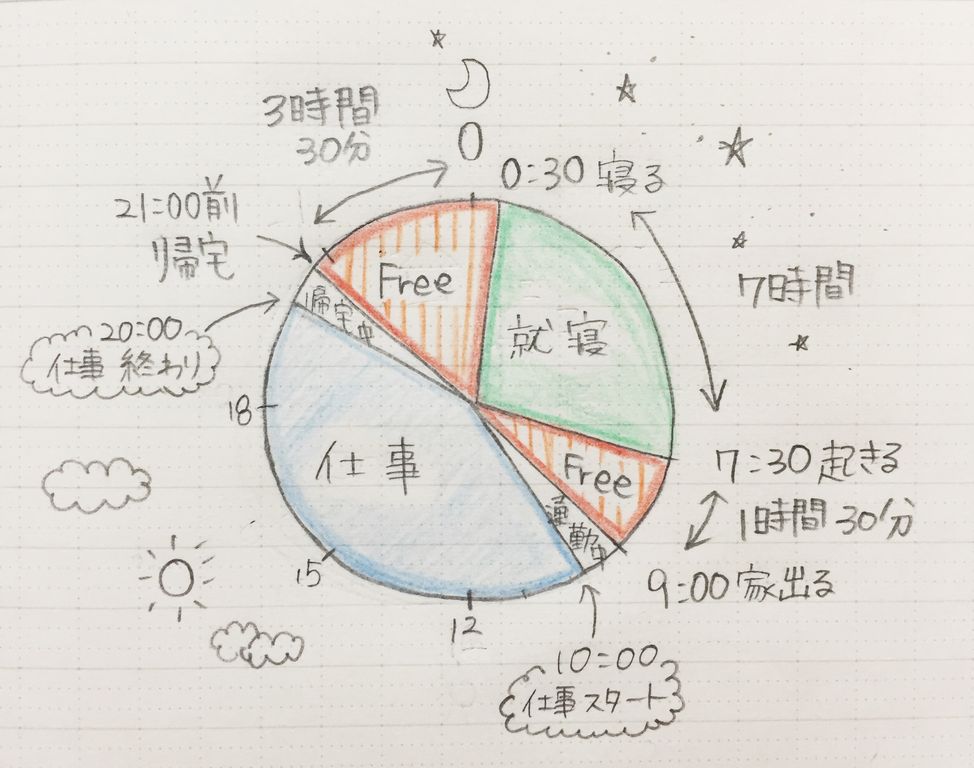 3時間
30分
0
0:30 寝る
21:00前
帰宅
Free
7時間
就寝
帰宅中
20:00
仕事 終わり
18
仕事
Free
7:30 起きる
通勤中
1時間30分
9:00 家出る
15
12
10:00
仕事スタート